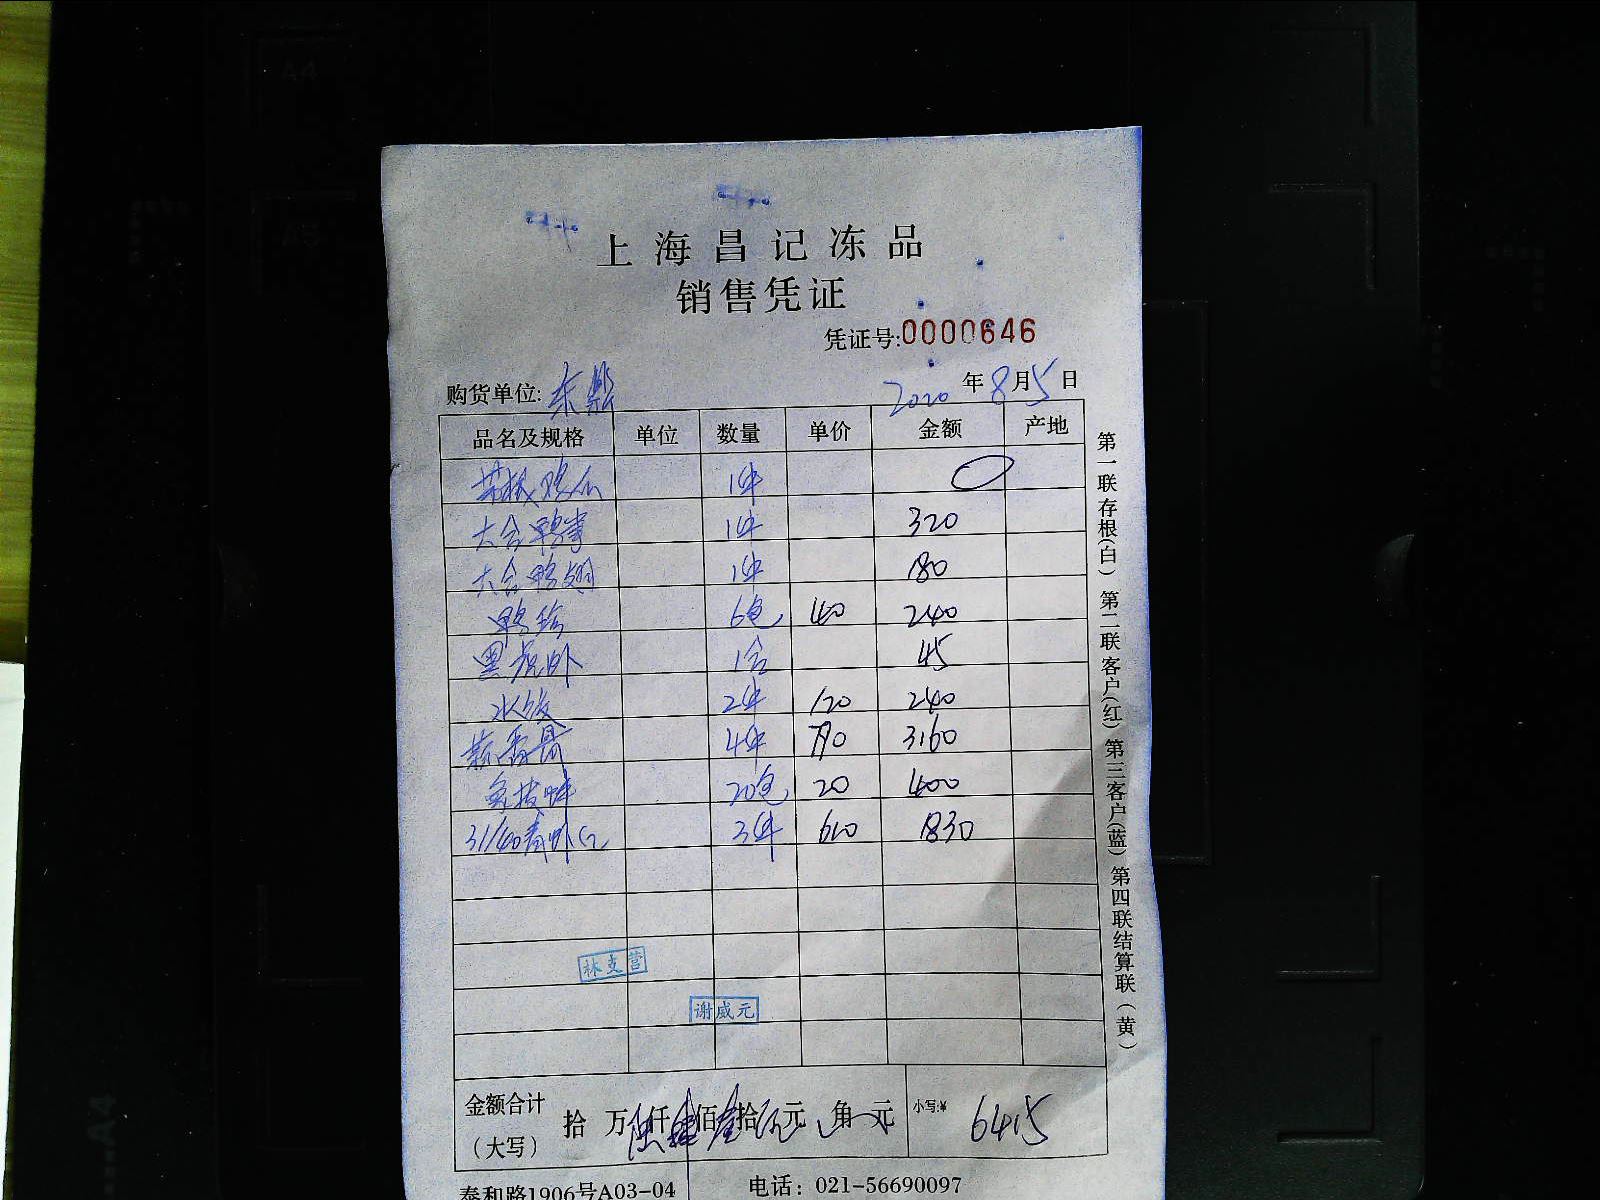 上海昌记冻品
销售凭证
凭证号:0000646
购货单位: 东 2020年8月5日
品名及规格 单位 数量 单价 金额 产地
1件 0
六合鸭掌 1件 320
六合鸭翅 1件 180
鸭珍 6包 40 240
黑虎虾 1合 45
水饺 2件 120 240
4件 790 3160
20包 20 400
31/40青虾仁 3件 610 1830
林支营
谢威元
金额合计
(大写) 拾 万 陆仟 肆佰 壹拾 伍元 角 元 小写:¥ 6415
泰和路1906号A03-04 电话：021-56690097
第一联存根(白) 第二联客户(红) 第三客户(蓝) 第四联结算联(黄)